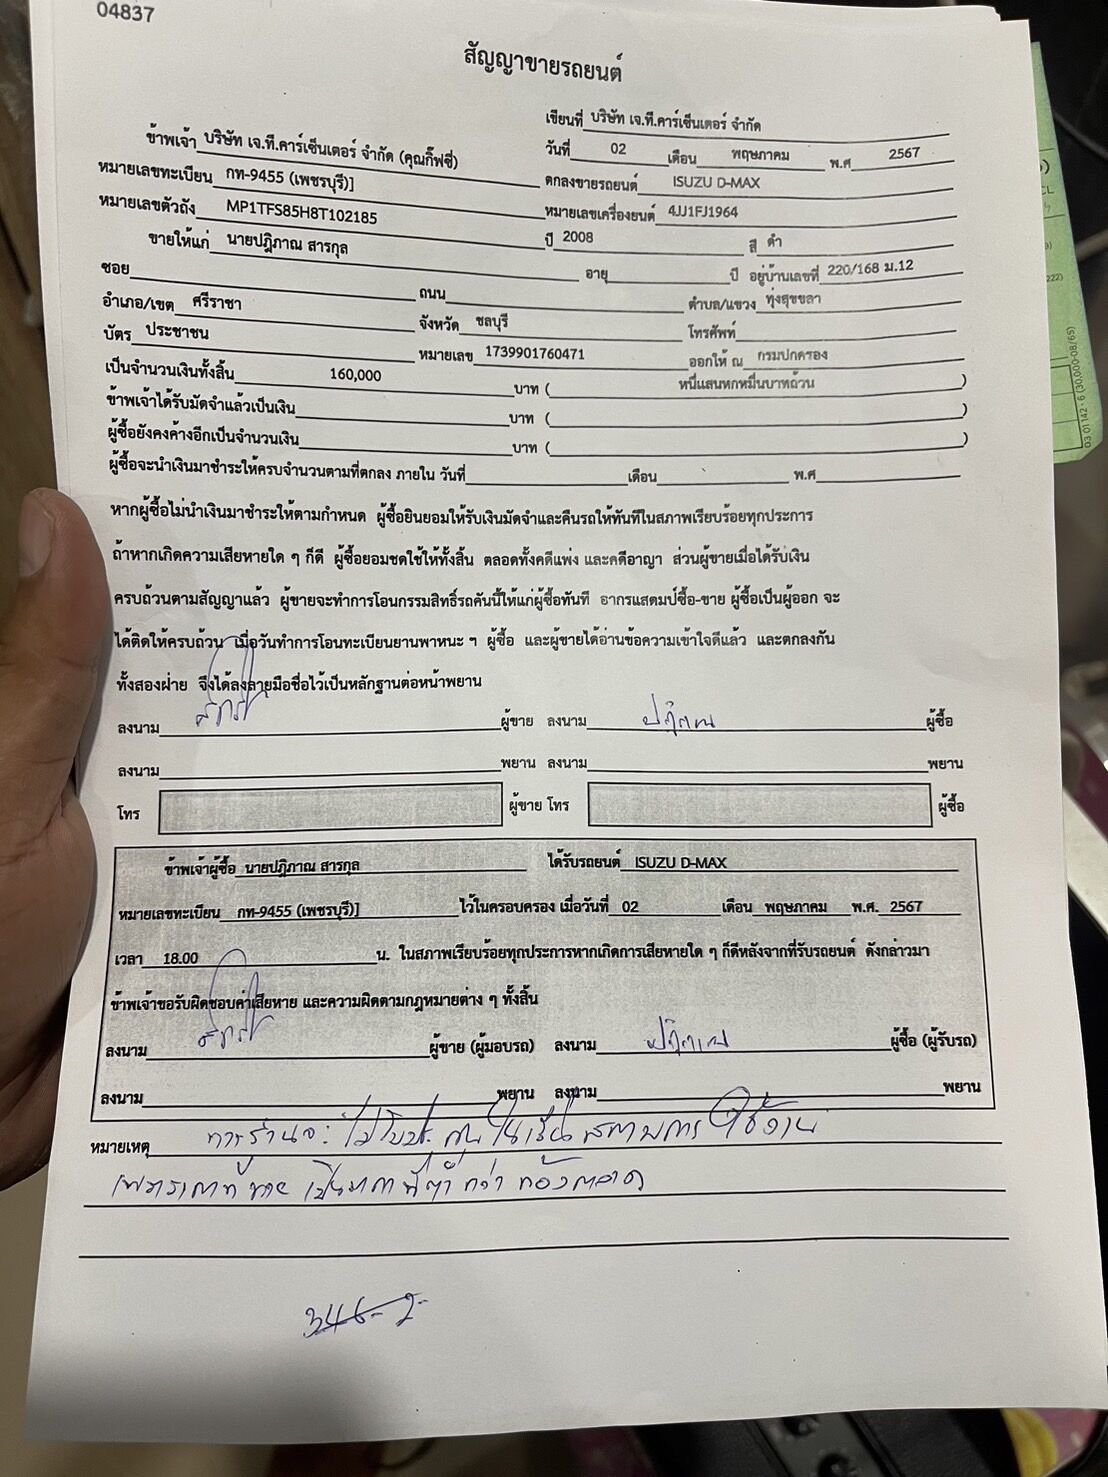 04837
สัญญาขายรถยนต์
เขียนที่ บริษัท เจ.ที.คาร์เซ็นเตอร์ จำกัด
ข้าพเจ้า บริษัท เจ.ที.คาร์เซ็นเตอร์ จำกัด (คุณกิ๊ฟซี่) วันที่ 02 เดือน พฤษภาคม พ.ศ 2567
หมายเลขทะเบียน กท-9455 (เพชรบุรี)] ตกลงขายรถยนต์ ISUZU D-MAX
หมายเลขตัวถัง MP1TFS85H8T102185 หมายเลขเครื่องยนต์ 4JJ1FJ1964
ขายให้แก่ นายปฎิภาณ สารกุล ปี 2008 สี ดำ
ซอย อายุ ปี อยู่บ้านเลขที่ 220/168 ม.12
อำเภอ/เขต ศรีราชา ถนน ตำบล/แขวง ทุ่งสุขขลา
บัตร ประชาชน จังหวัด ชลบุรี โทรศัพท์
เป็นจำนวนเงินทั้งสิ้น 160,000 หมายเลข 1739901760471 ออกให้ ณ กรมปกครอง
บาท ( หนึ่แสนหกหมื่นบาทถ้วน )
ข้าพเจ้าได้รับมัดจำแล้วเป็นเงิน บาท ( )
ผู้ซื้อยังคงค้างอีกเป็นจำนวนเงิน บาท ( )
ผู้ซื้อจะนำเงินมาชำระให้ครบจำนวนตามที่ตกลง ภายใน วันที่ เดือน พ.ศ
หากผู้ซื้อไม่นำเงินมาชำระให้ตามกำหนด ผู้ซื้อยินยอมให้รับเงินมัดจำและคืนรถให้ทันทีในสภาพเรียบร้อยทุกประการ
ถ้าหากเกิดความเสียหายใด ๆ ก็ดี ผู้ซื้อยอมชดใช้ให้ทั้งสิ้น ตลอดทั้งคดีแพ่ง และคดีอาญา ส่วนผู้ขายเมื่อได้รับเงิน
ครบถ้วนตามสัญญาแล้ว ผู้ขายจะทำการโอนกรรมสิทธิ์รถคันนี้ให้แก่ผู้ซื้อทันที อากรแสตมป์ซื้อ-ขาย ผู้ซื้อเป็นผู้ออก จะ
ได้ติดให้ครบถ้วน เมื่อวันทำการโอนทะเบียนยานพาหนะ ฯ ผู้ซื้อ และผู้ขายได้อ่านข้อความเข้าใจดีแล้ว และตกลงกัน
ทั้งสองฝ่าย จึงได้ลงลายมือชื่อไว้เป็นหลักฐานต่อหน้าพยาน
ลงนาม ผู้ขาย ลงนาม ปฎิภาณ ผู้ซื้อ
ลงนาม พยาน ลงนาม พยาน
โทร ผู้ขาย โทร ผู้ซื้อ
ข้าพเจ้าผู้ซื้อ นายปฎิภาณ สารกุล ได้รับรถยนต์ ISUZU D-MAX
หมายเลขทะเบียน กท-9455 (เพชรบุรี)] ไว้ในครอบครอง เมื่อวันที่ 02 เดือน พฤษภาคม พ.ศ. 2567
เวลา 18.00 น. ในสภาพเรียบร้อยทุกประการหากเกิดการเสียหายใด ๆ ก็ดีหลังจากที่รับรถยนต์ ดังกล่าวมา
ข้าพเจ้าขอรับผิดชอบค่าเสียหาย และความผิดตามกฎหมายต่าง ๆ ทั้งสิ้น
ลงนาม ผู้ขาย (ผู้มอบรถ) ลงนาม ปฎิภาณ ผู้ซื้อ (ผู้รับรถ)
ลงนาม พยาน ลงนาม พยาน
หมายเหตุ ทางร้านจะไม่รับประกันในเรื่องสภาพการใช้งาน
เพราะราคาที่ขายเป็นราคาที่ต่ำกว่าท้องตลาด
03 01 142 - 6 (30,000-08/65)